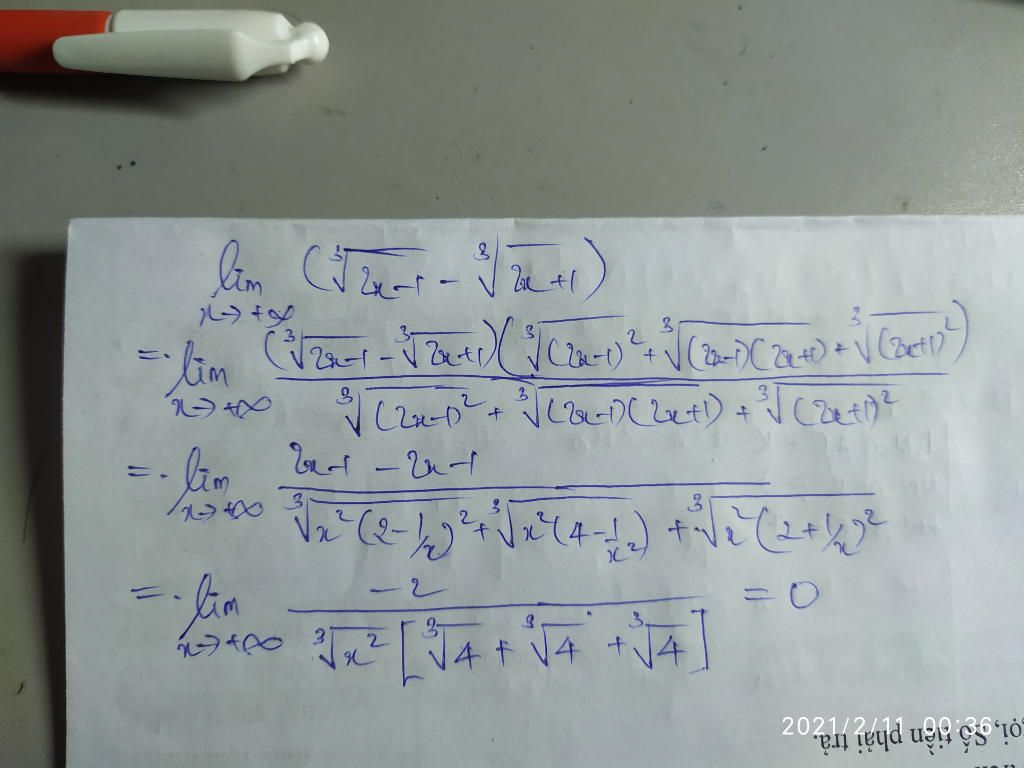 lim x→+∞ (∛(2x-1) - ∛(2x+1))
= lim x→+∞ (∛(2x-1) - ∛(2x+1))(∛((2x-1)²) + ∛((2x-1)(2x+1)) + ∛((2x+1)²)) / (∛((2x-1)²) + ∛((2x-1)(2x+1)) + ∛((2x+1)²))
= lim x→+∞ (2x-1 - 2x-1) / (∛(x²(2-1/x)²) + ∛(x²(4-1/x²)) + ∛(x²(2+1/x)²))
= lim x→+∞ -2 / (∛(x²) [∛4 + ∛4 + ∛4]) = 0
2021/2/11 00:36
Số tiền phải trả.